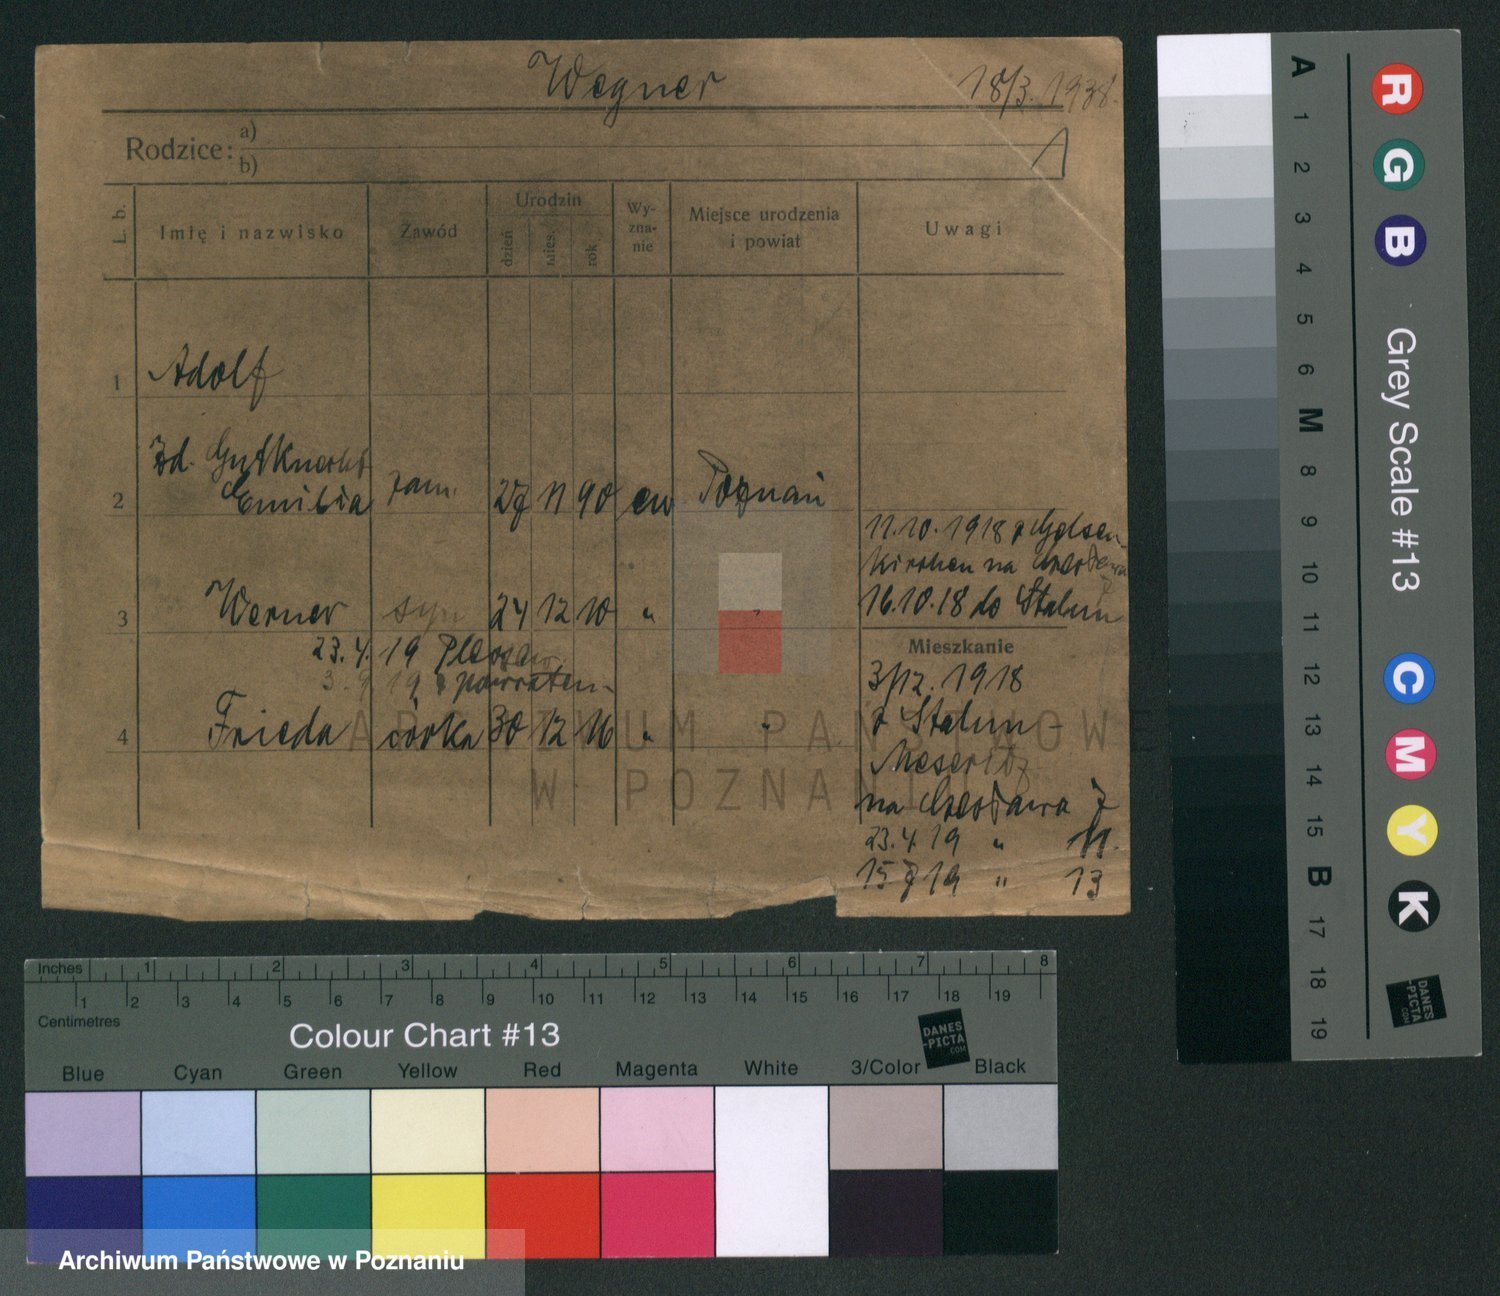 Wegner 18/3. 1938.
Rodzice: a)
b)
L. b. Imię i nazwisko Zawód Urodzin dzień mies. rok Wyznanie Miejsce urodzenia i powiat Uwagi
1 Adolf
2 zd. Gutknecht
Emilia zam. 11 90 ew Poznań
11.10.1918 z Gelsen-
kirchen na
16.10.18 do Stalun
3 Werner syn 24 12 10 "
Mieszkanie
23.4.19
3/12.1918
3.9.19
4 Frieda córka 30 12 16 " "
z Stalun
Meseritz
na 7
23.4.19 " 11.
15 19 " 13
ARCHIWUM PAŃSTWOWE
W POZNANIU
A 1 2 3 4 5 6 M 8 9 10 11 12 13 14 15 B 17 18 19
R G B
Grey Scale #13
C M Y K
DANES
-PICTA
.COM
Inches 1 2 3 4 5 6 7 8
1 2 3 4 5 6 7 8 9 10 11 12 13 14 15 16 17 18 19
Centimetres
Colour Chart #13
DANES
-PICTA
.COM
Blue Cyan Green Yellow Red Magenta White 3/Color Black
Archiwum Państwowe w Poznaniu